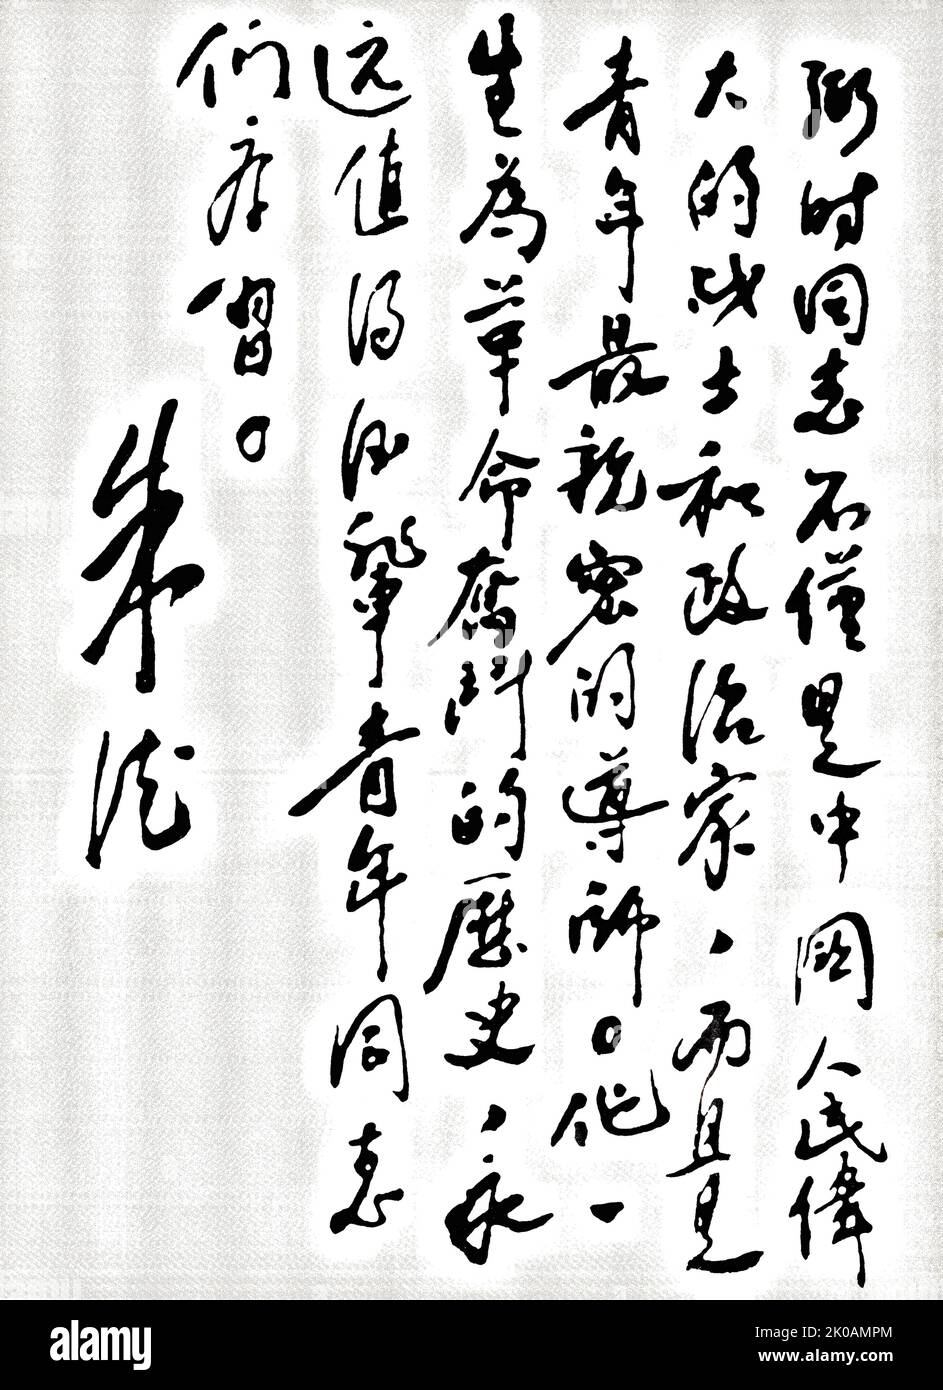 弼时同志不僅是中國人民偉
大的战士和政治家、而且是
青年最親密的導師。他一
生為革命奮鬥的歷史、永
远值得輩青年同志
们学習。
朱德
alamy
Image ID: 2K0AMPM
www.alamy.com